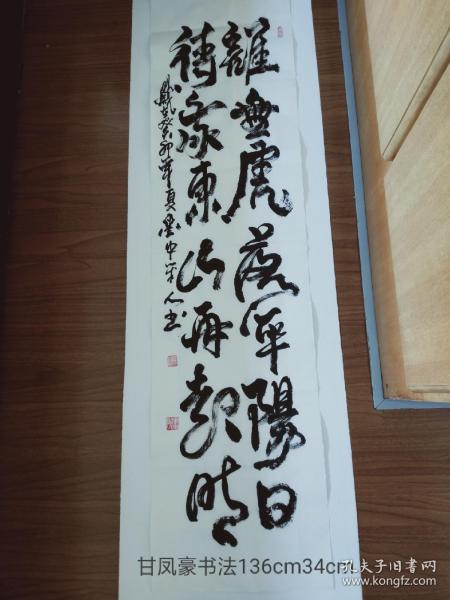 誰無虎落平陽日
待我東山再起時
歲在癸卯年夏墨中平人書
甘凤豪书法136cm34cm
孔夫子旧书网
www.kongfz.com